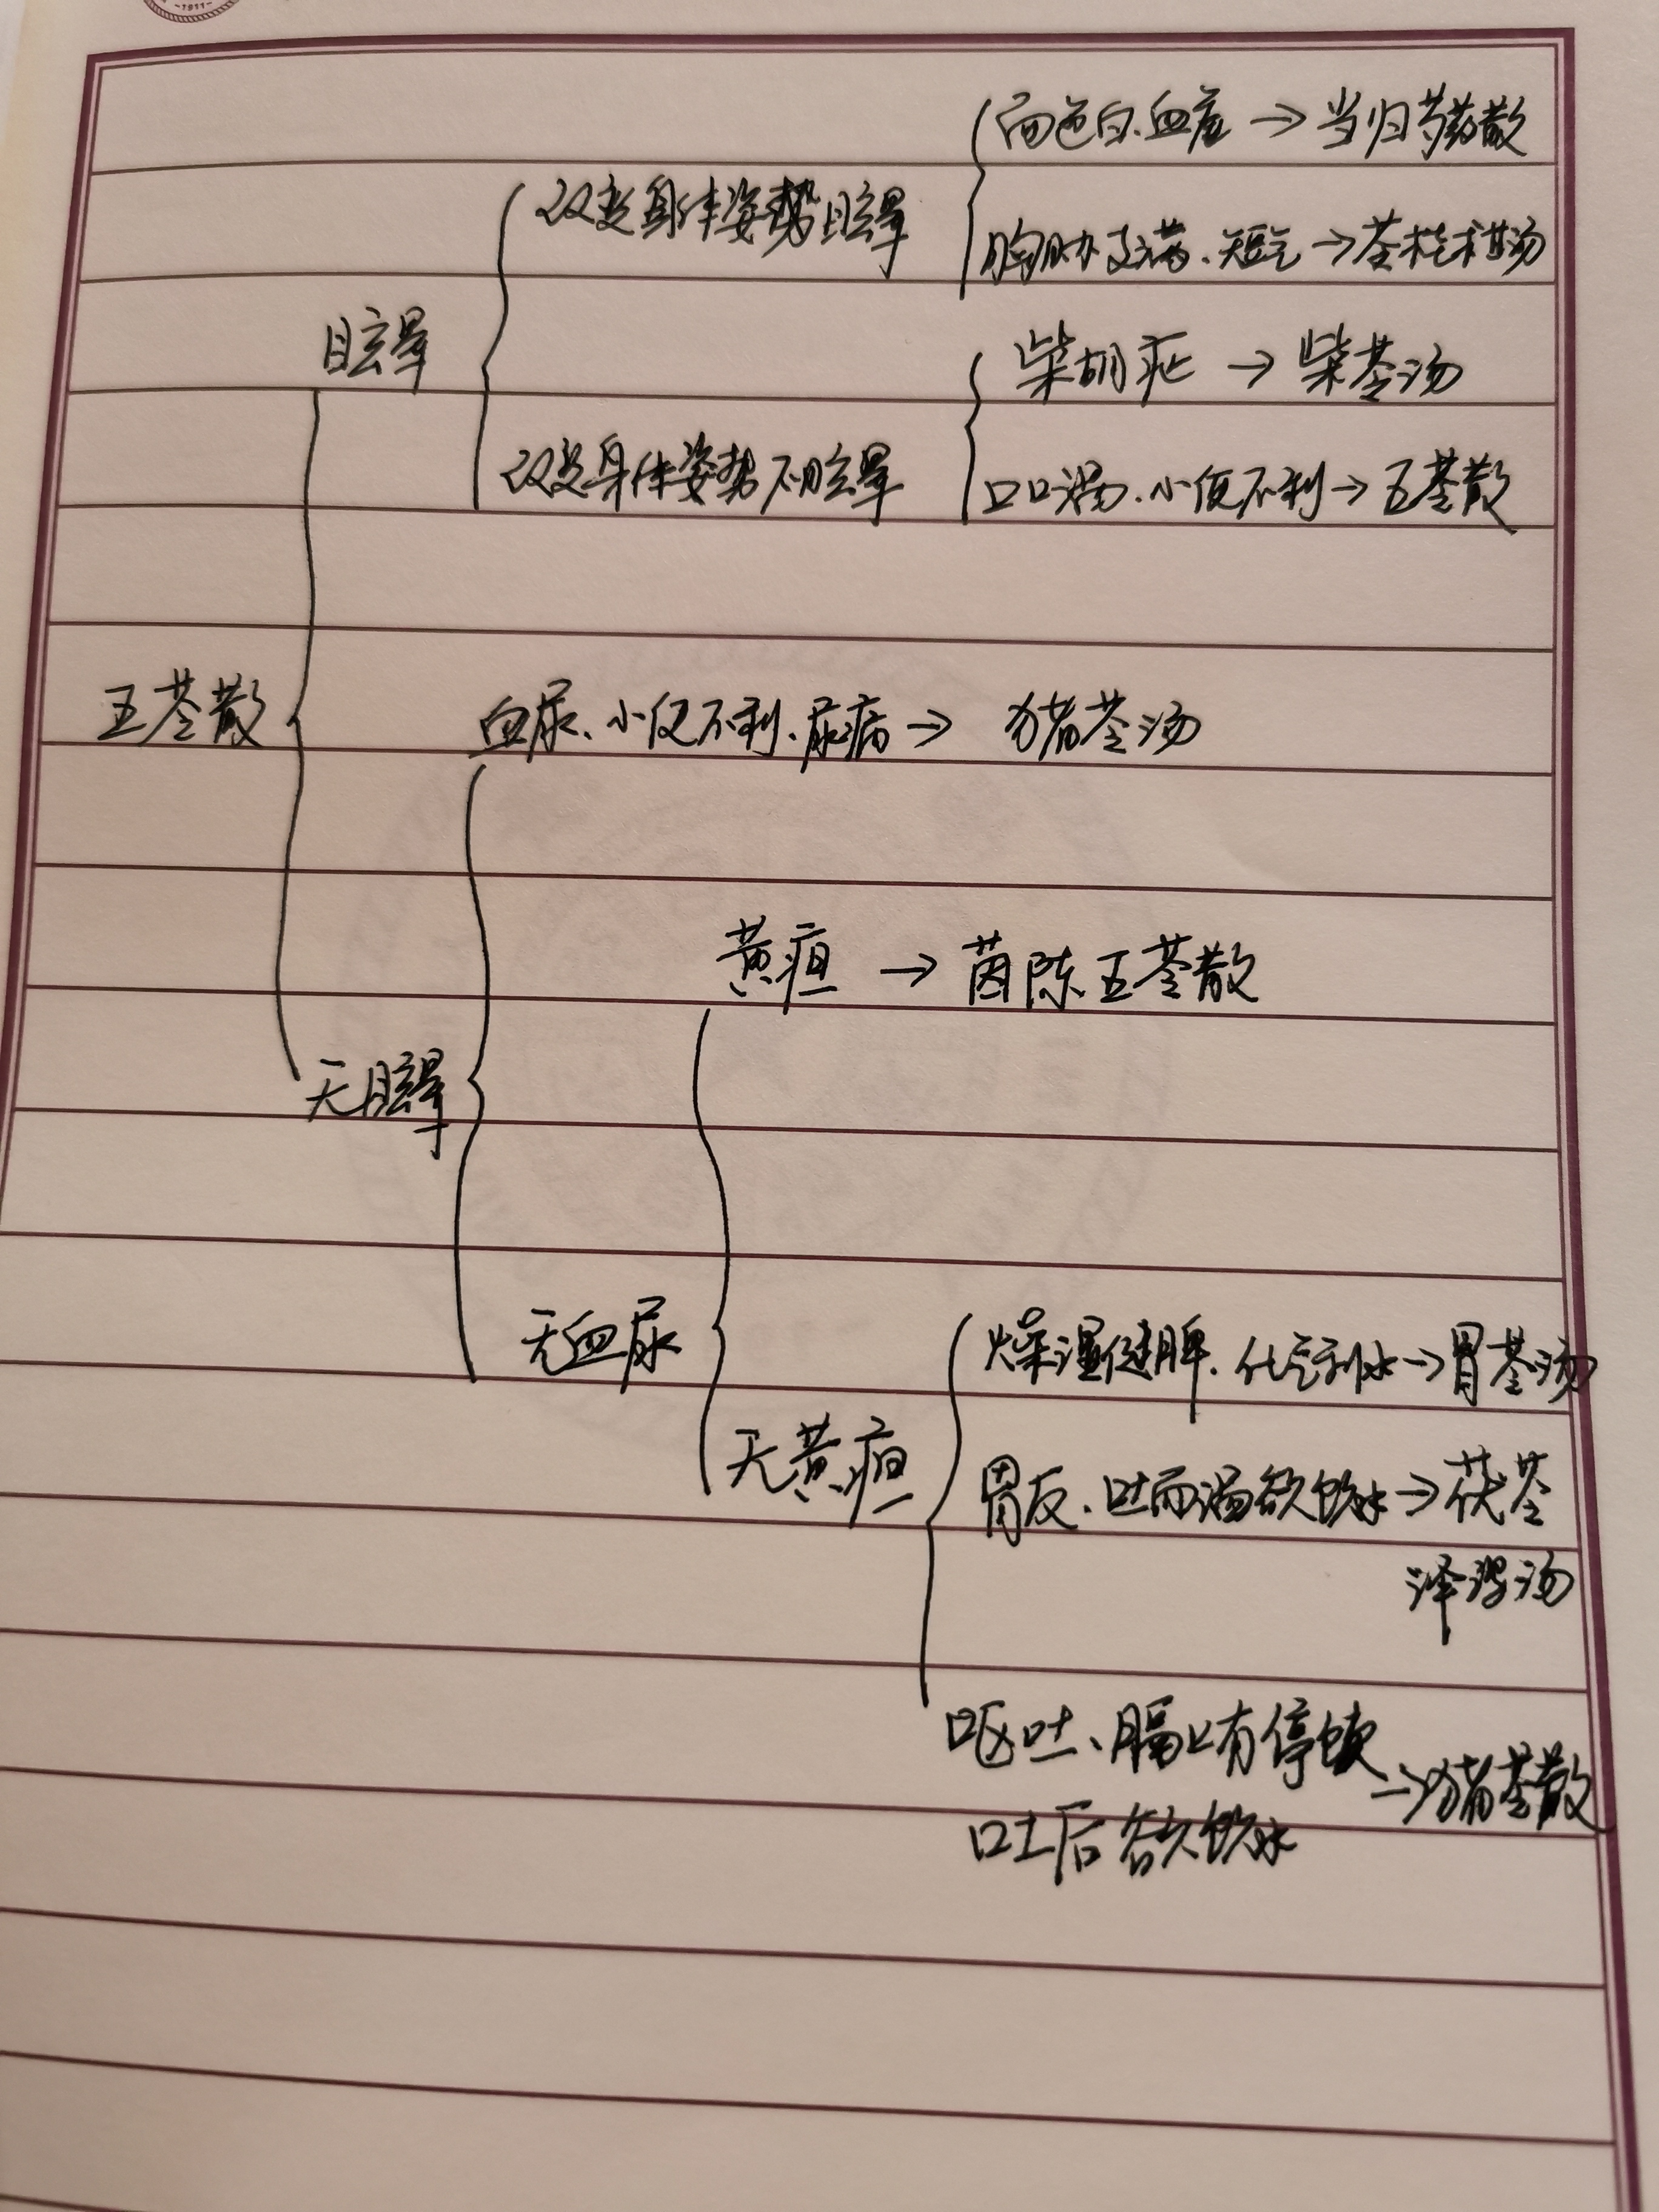 -1911-
面色白.血虚→当归芍药散
改变身体姿势眩晕
胸胁支满.短气→苓桂术甘汤
眩晕
柴胡证→柴苓汤
改变身体姿势不眩晕
口渴.小便不利→五苓散
五苓散
血尿、小便不利、尿痛→猪苓汤
黄疸→茵陈五苓散
无眩晕
无血尿
燥湿健脾.化气利水→胃苓汤
无黄疸
胃反.吐而渴欲饮水→茯苓
泽泻汤
呕吐、膈上有停饮
→猪苓散
吐后欲饮水